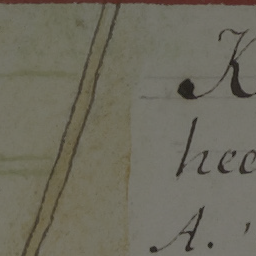 K
hee
A. '